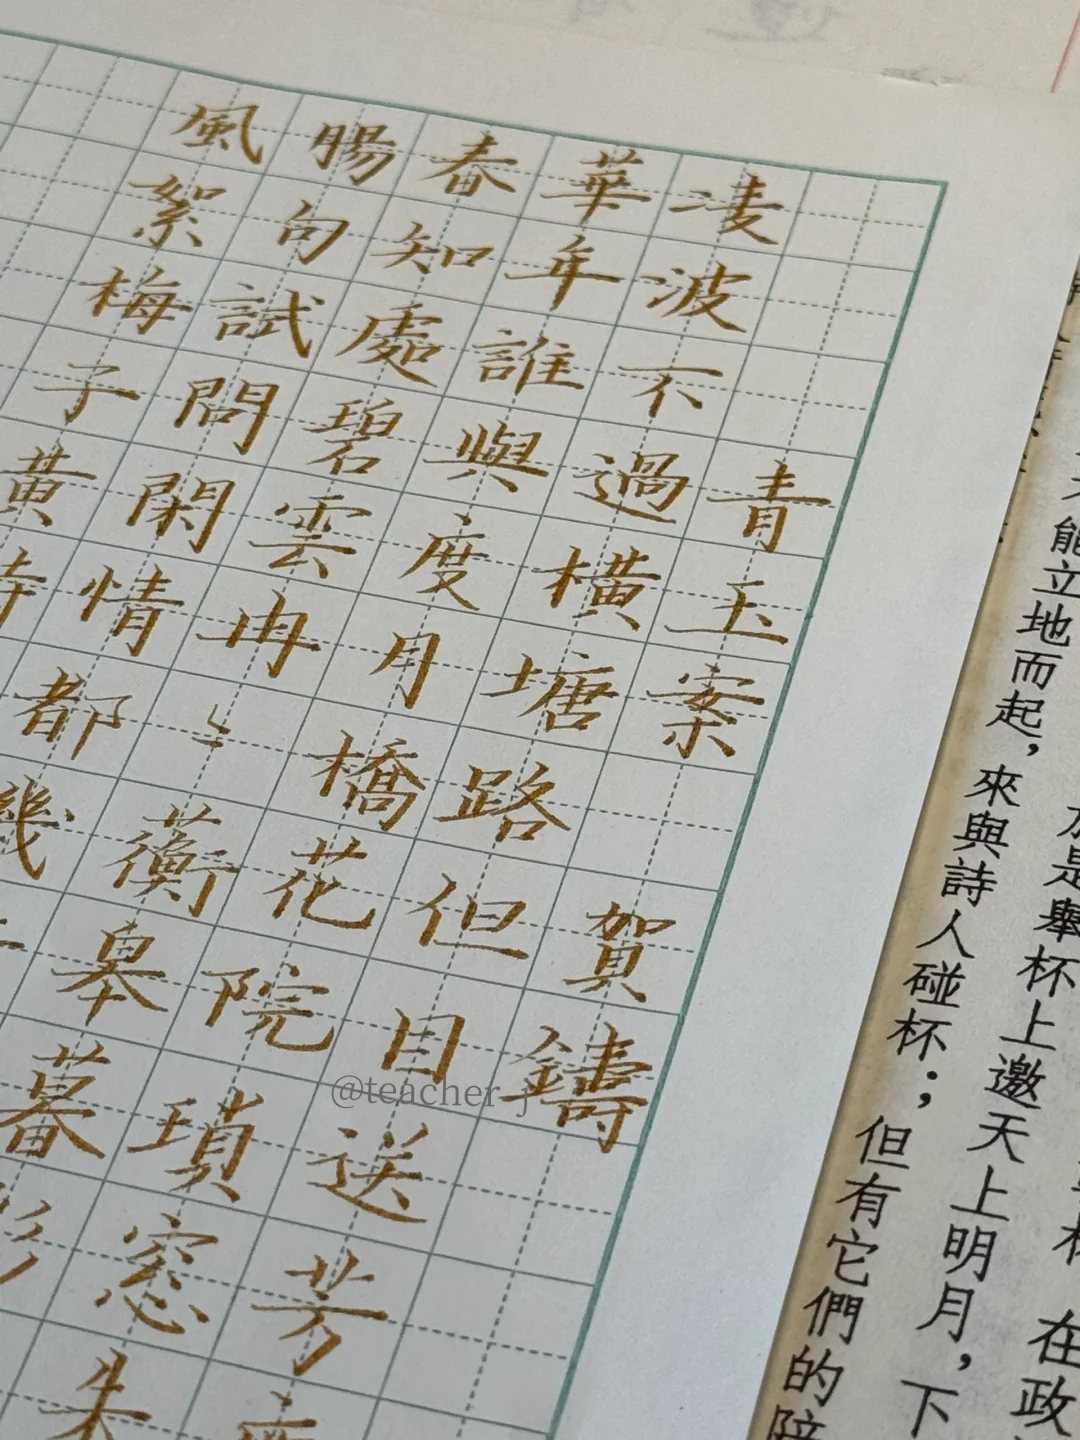 青玉案 賀鑄
凌波不過橫塘路但目送芳
華年誰與度月橋花院瑣窓朱
春知處碧雲冉〻蘅皋暮彩
腸句試問閑情都幾
風絮梅子黃時
在政
是舉杯上邀天上明月，下
能立地而起，來與詩人碰杯；但有它們的陪
@teacher_j